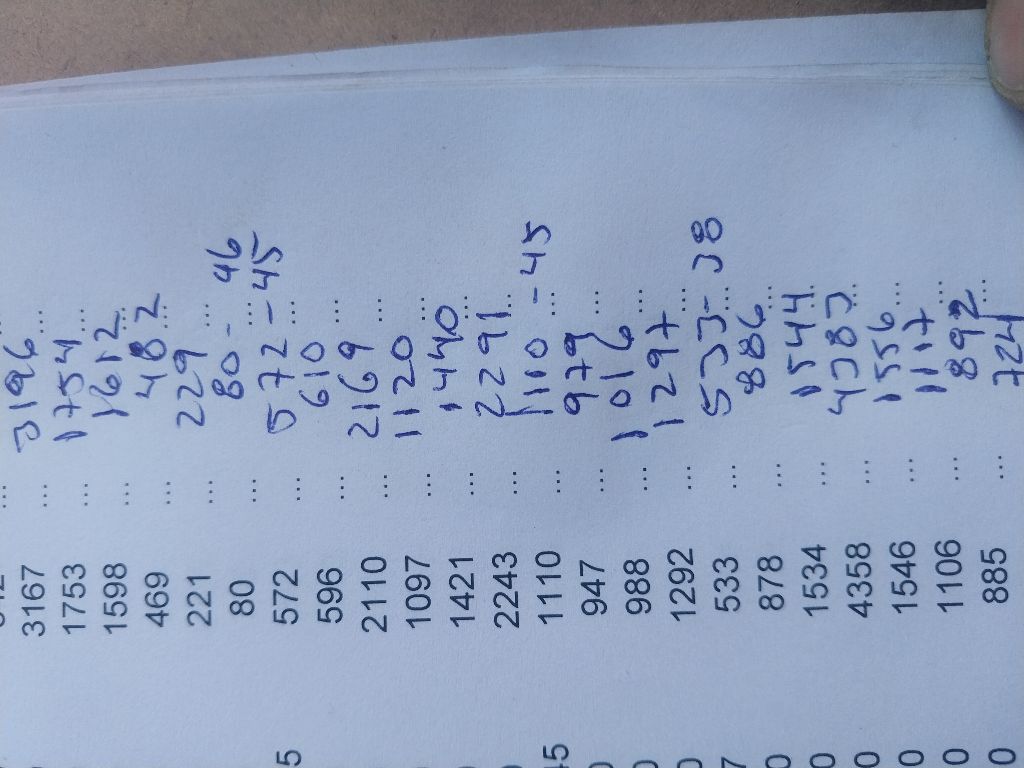 3167 ... 3196 ...
1753 ... 1754 ...
1598 ... 1612 ...
469 ... 482 ...
221 ... 229 ...
80 ... 80 - 46 ...
5 572 ... 572 - 45 ...
596 ... 610 ...
2110 ... 2169 ...
1097 ... 1120 ...
1421 ... 1440 ...
2243 ... 2291 ...
45 1110 ... 1110 - 45 ...
0 947 ... 979 ...
0 988 ... 1016 ...
0 1292 ... 1297 ...
7 533 ... 533 - 38 ...
0 878 ... 886 ...
0 1534 ... 1544 ...
0 4358 ... 4383 ...
0 1546 ... 1556 ...
0 1106 ... 1117 ...
0 885 ... 892 ...
724